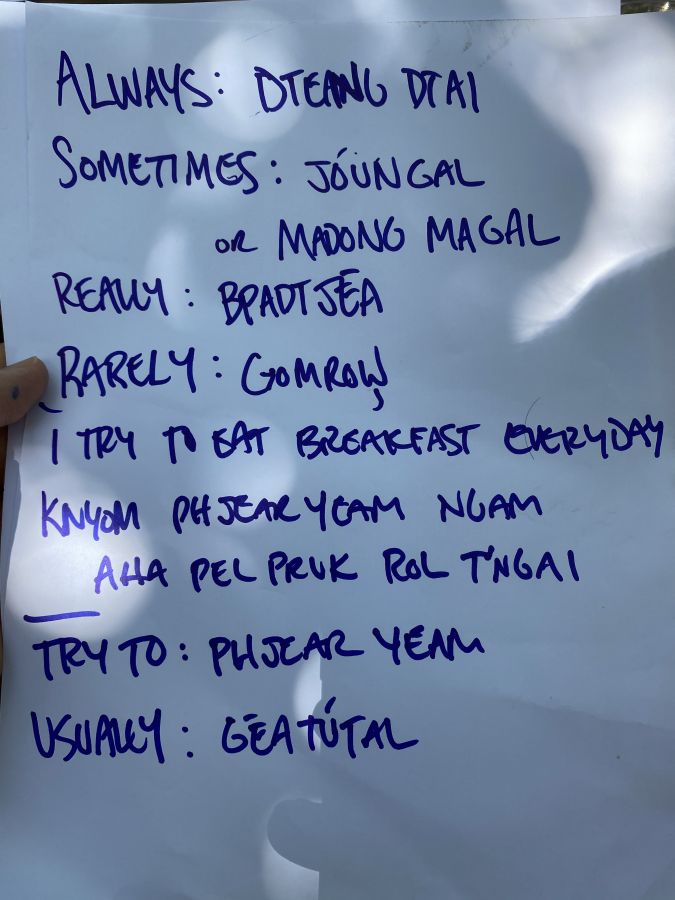 ALWAYS: DTEANG DTAI
SOMETIMES: JÓUNGAL
OR MADONG MAGAL
REALLY: BPADTJĒA
RARELY: GOMROW
I TRY TO EAT BREAKFAST EVERYDAY
KNYOM PHJEAR YEAM NGAM
AHA PEL PRUK ROL T'NGAI
TRY TO: PHJEAR YEAM
USUALLY: GĒATÚTAL